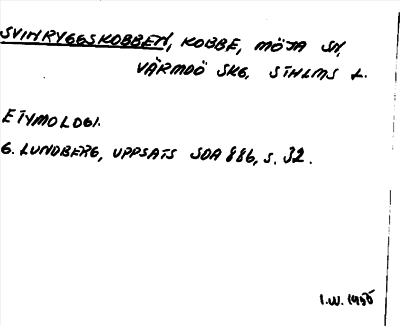 SVINRYGGSKOBBEN, KOBBE, MÖJA SN,
VÄRMDÖ SKG, STHLMS L.
ETYMOLOGI.
G. LUNDBERG, UPPSATS SOA 886, S. 32.
I.W. 1955